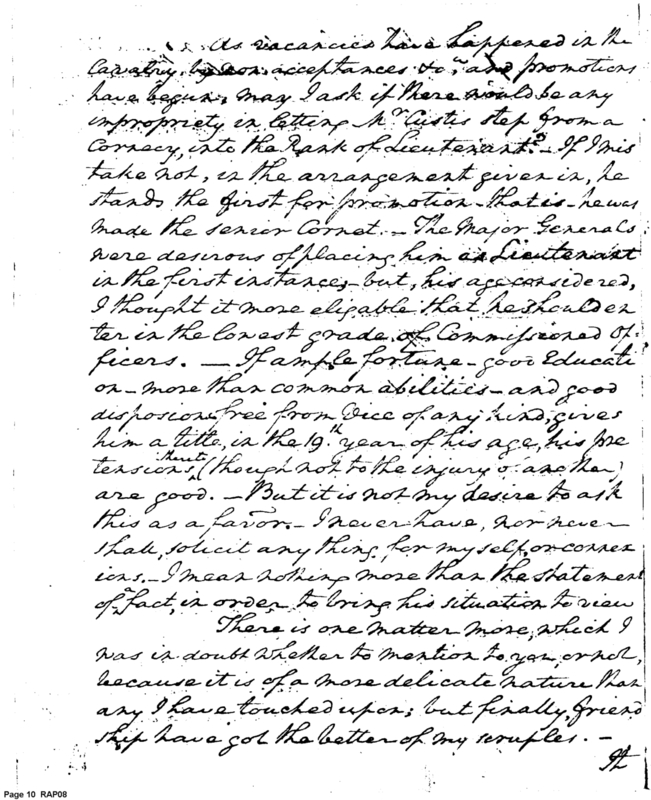 As vacancies have happened in the
Cavalry by non acceptances &ca. and promotions
have begun, may I ask if there would be any
impropriety in letting Mr Custis step from a
Cornecy, into the Rank of Lieutenant?- If I mis
take not, in the arrangement given in, he
stands the first for promotion- that is- he was
made the senior Cornet.- The Major Generals
were desirous of placing him as Lieutenant
in the first instance; but, his age considered,
I thought it more eligable that he should en
ter in the lowest grade of Commissioned Of
ficers. — If ample fortune- good Educati
on- more than common abilities- and good
disposions free from Vice of any kind, gives
him a title, in the 19th. year of his age, his pre
tensions thereto (though not to the injury of another)
are good.- But it is not my desire to ask
this as a favor.- I never have, nor never
shall, solicit any thing for myself, or connex
ions.- I mean nothing more than the statement
of fact, in order to bring his situation to view
There is one matter more, which I
was in doubt whether to mention to you, or not,
because it is of a more delicate nature than
any I have touched upon; but finally, friend
ship have got the better of my scruples. -
It
Page 10 RAP08